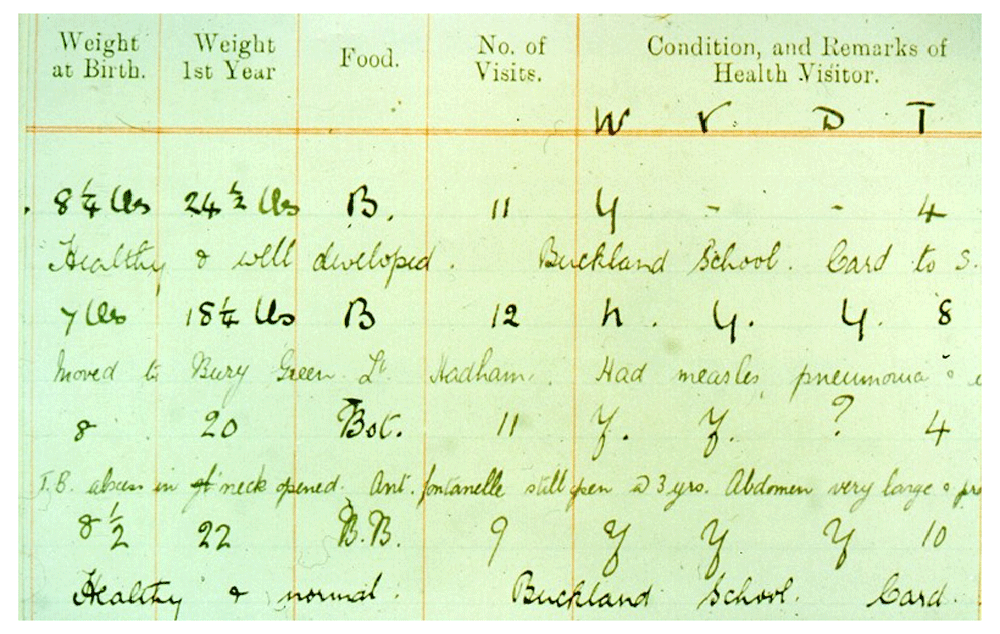 Weight at Birth. Weight 1st Year Food. No. of Visits. Condition, and Remarks of Health Visitor.
W V. D T
8 1/4 lbs 24 1/2 lbs B. 11 Y - - 4
Healthy & well developed. Buckland School. Card to S.
7 lbs 18 1/4 lbs B 12 n. Y. Y. 8
Moved to Bury Green Lt. Hadham. Had measles, pneumonia &
8 20 Bot. 11 Y. Y. ? 4
T.B. abscess in neck opened. Ant. fontanelle still open @ 3 yrs. Abdomen very large &
8 1/2 22 B.B. 9 Y Y Y 10
Healthy & normal. Buckland School. Card.